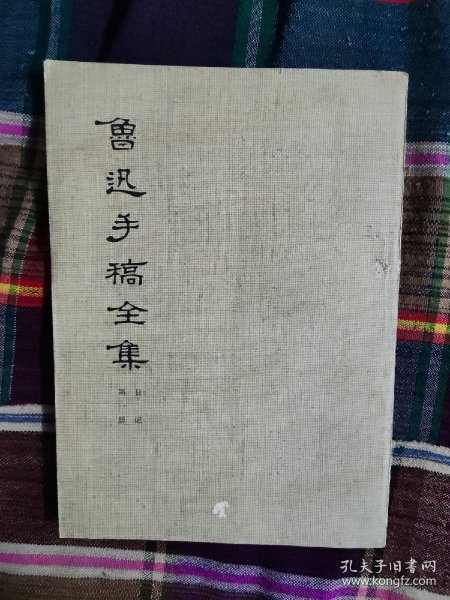 魯迅手稿全集
日记
第一册
孔夫子旧书网
www.kongfz.com